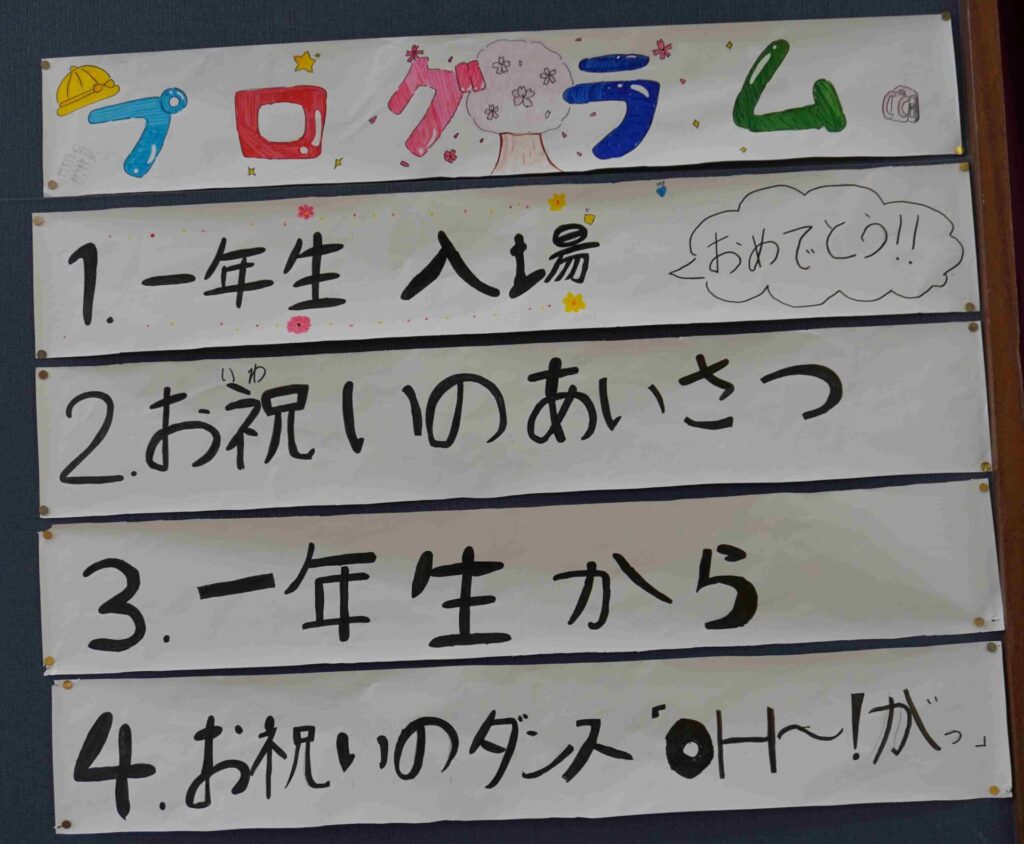 プログラム
1. 一年生 入場 おめでとう!!
いわ
2. お祝いのあいさつ
3. 一年生から
4. お祝いのダンス「OH〜!がっ」